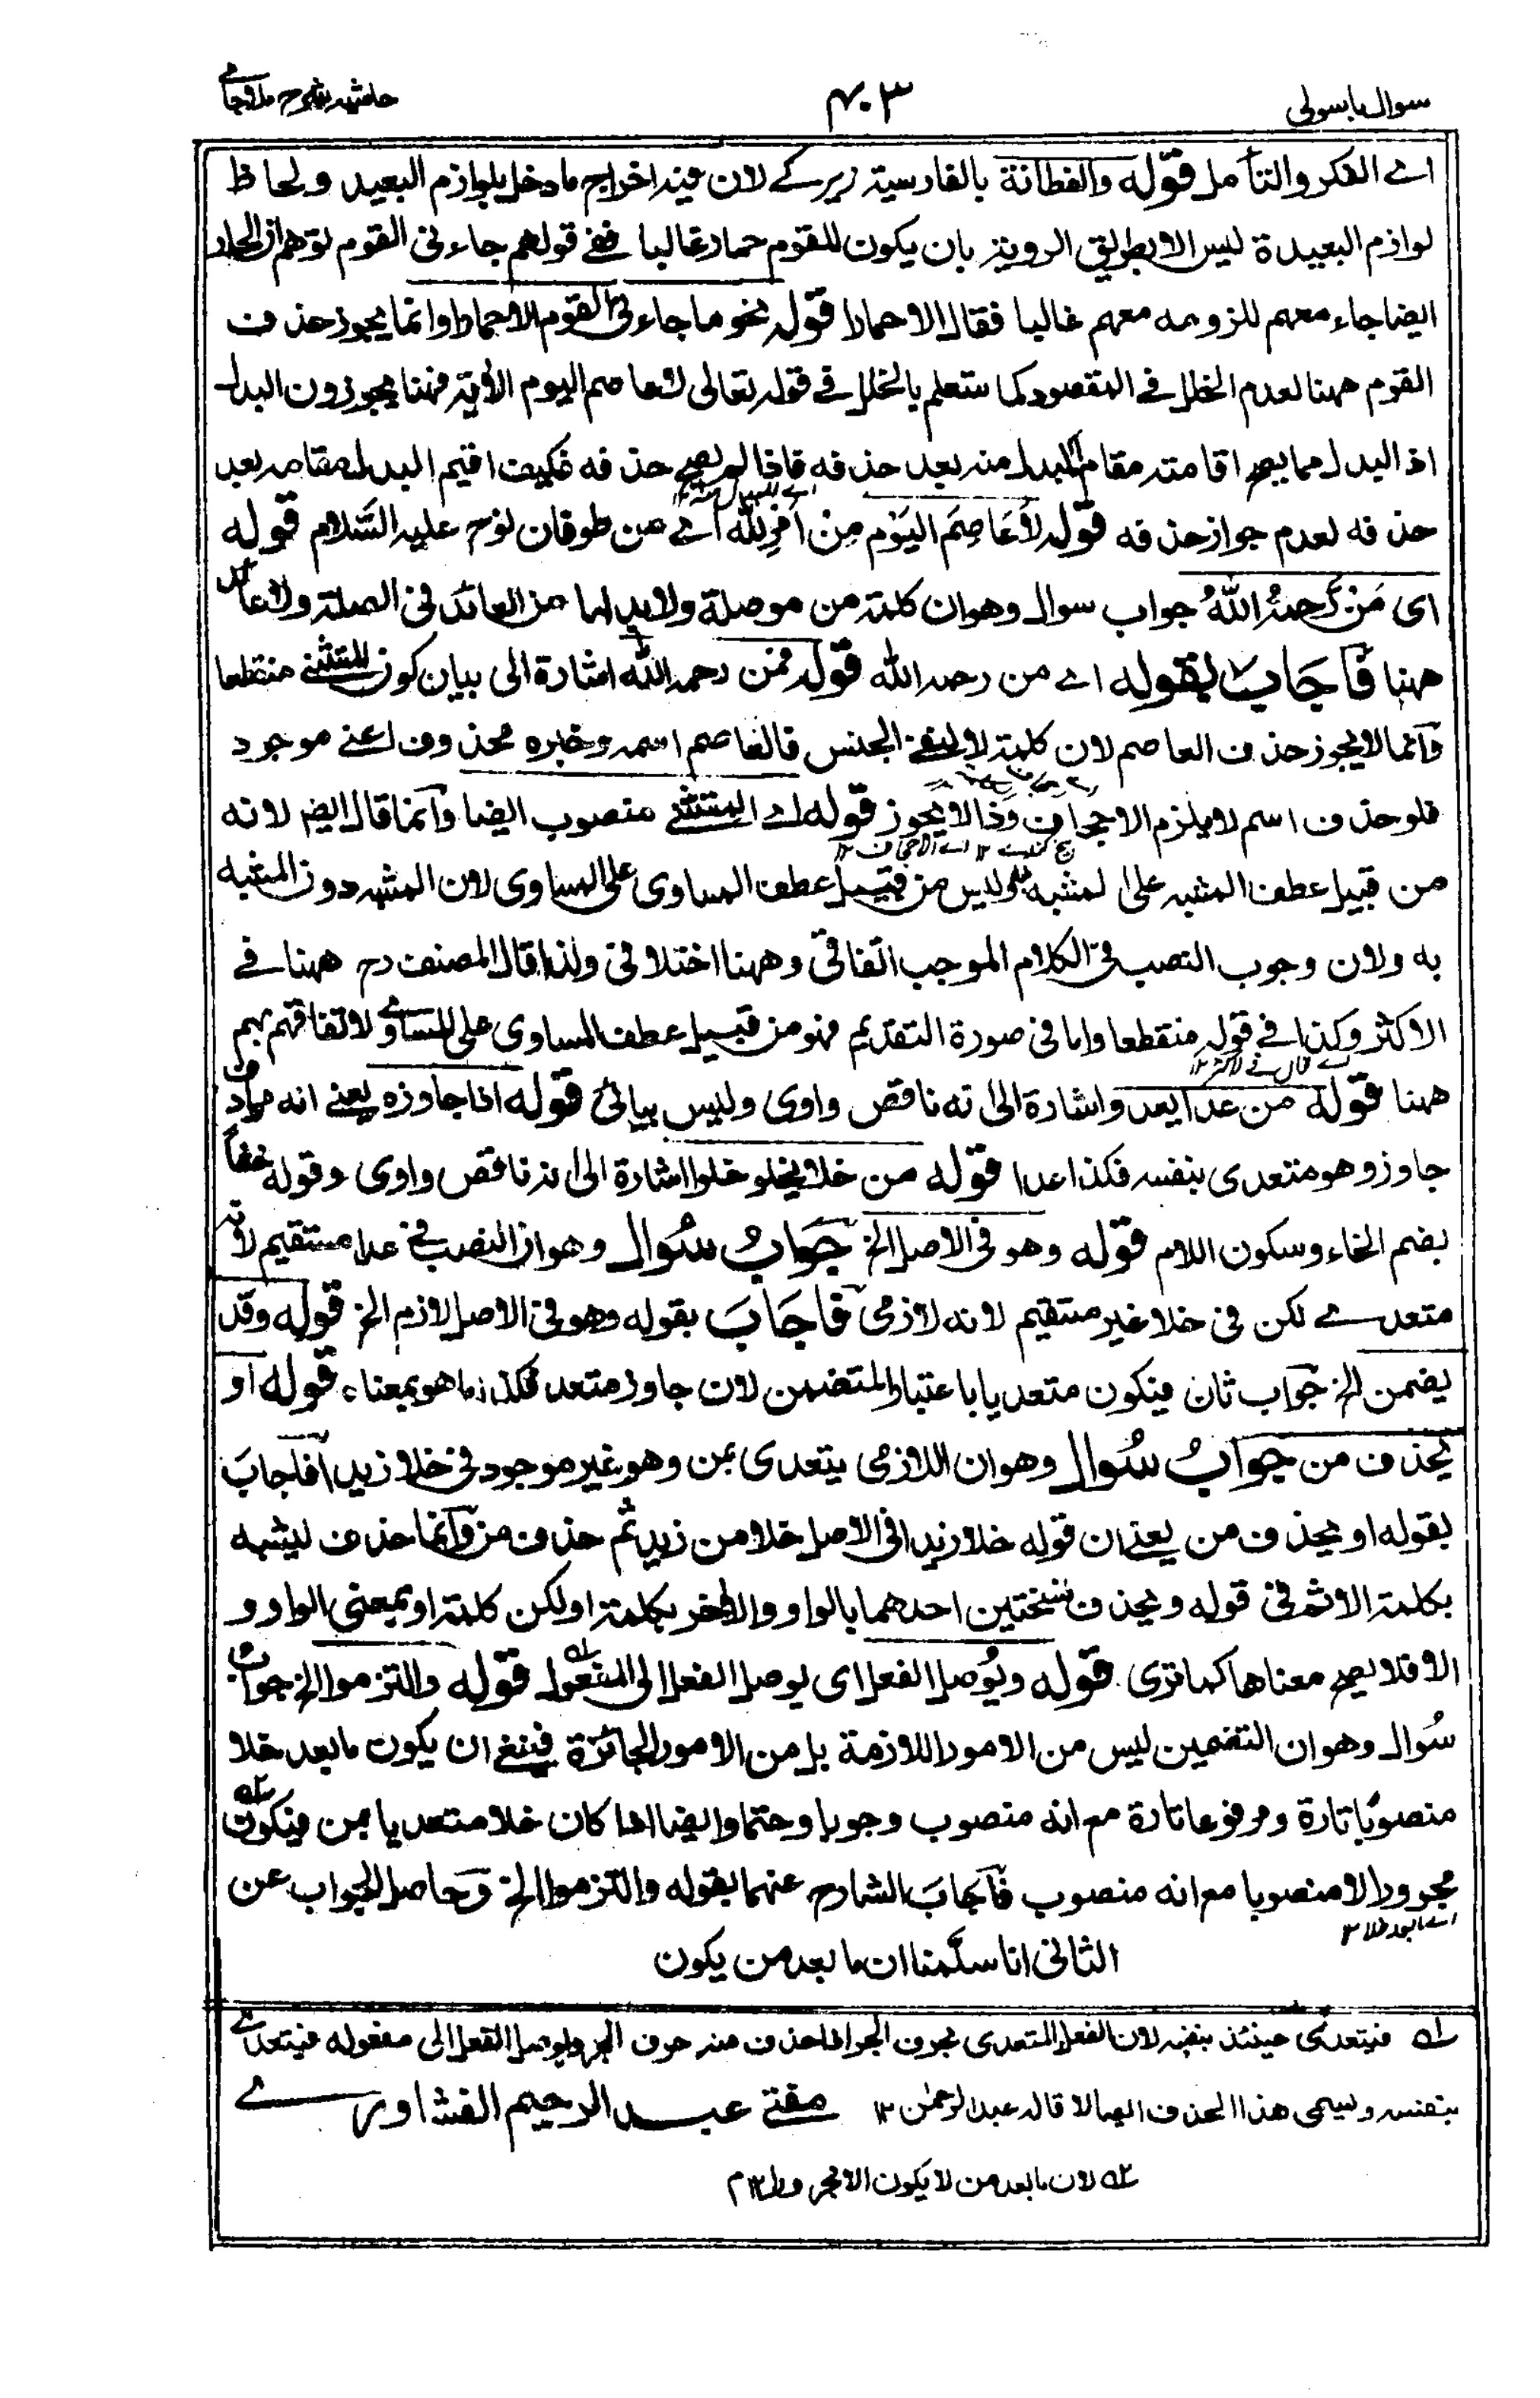 سوال باسولی
۴۰۳
حاشیہ شرح ملا جامے
اے الفکر والتأمل قوله والفطانة بالفارسیة زیرکے لان فیه اخراج مادخل بلوازم البعید ولحاظ
لوازم البعیدة لیس الا بطریق الرویة بان یکون للقوم حمار غالبا ففے قولهم جاءنی القوم توهم ان الحمار
ایضا جاء معهم للزومه معهم غالبا فقال الاحمارا قوله نحو ماجاءنی القوم الاحمارا وانما یجوز حذف
القوم ههنا لعدم الخلل فے المقصود کما ستعلم بالخلل فے قوله تعالی لاعاصم الیوم الأیة فههنا یجوزون البدل
اذ البدل مما یصح اقامته مقام المبدل منه بعد حذفه فاذا لم یصح حذفه فکیف اقیم البدل مقامه بعد
حذفه لعدم جواز حذفه قوله لَاعَاصِمَ الیَوْمَ مِنْ اَمْرِ اللّٰه اے من طوفان نوح علیه السَّلام قوله
ای مَنْ رَّحِمَهُ اللّٰهُ جواب سوال وهو ان کلمة من موصلة ولابد لها من العائد فی الصلة ولا عائد
ههنا فَاَجَابَ بقوله اے من رحمه الله قوله فمن رحمه الله اشارة الی بیان کون المستثنے منقطعا
وَاَنما لایجوز حذف العاصم لان کلمة لا لنفے الجنس فالعاصم اسمه وخبره محذوف اعنے موجود
فلو حذف اسم لا یلزم الاجحاف وَذا لایجوز قوله اے المستثنے منصوب ایضا وَانما قال ایضا لانه
من قبیل عطف المشبه علی المشبه به ولیس من قبیل عطف المساوی علی المساوی لان المشبه دون المشبه
به ولان وجوب النصب فی الکلام الموجب اتفاقی وههنا اختلافی ولذا قال المصنف رح ههنا فے
الاکثر وکذا فے قوله منقطعا واما فی صورة التقدیم فهو من قبیل عطف المساوی علی المساوے لاتفاقهم بهم
ههنا قوله من عدا یعدو اشارة الی انه ناقص واوی ولیس بیائی قوله اذا جاوزه یعنے انه مرادف
جاوز وهو متعدی بنفسه فکذا عدا قوله من خلا یخلو خلوا اشارة الی انه ناقص واوی وقوله خلواً
بضم الخاء وسکون اللام قوله وهو فی الاصل الخ جَوَابُ سُوال وهو ان النصب فے عدا مستقیم لانه
متعدے لکن فی خلا غیر مستقیم لانه لازمی فَاَجَابَ بقوله وهو فی الاصل لازم الخ قوله وقد
یضمن الخ جَوَاب ثان فیکون متعدیا باعتبار المتضمن لان جاوز متعد فکذا ما هو بمعناه قوله او
یحذف من جوابُ سُوال وهو ان اللازمی یتعدی بمن وهو غیر موجود فی خلا زیدا فاجابَ
بقوله او یحذف من یعنے ان قوله خلا زیدا فی الاصل خلا من زید ثم حذف من وَانما حذف لیشبه
بکلمة الا ثم فی قوله ویحذف نسختین احدهما بالواو والاخر بکلمة او لکن کلمة او بمعنی الواو و
الا فلا یصح معناها کما تری قوله ویُوصل الفعل ای یوصل الفعل الی المفعول قوله والتزموا الخ جواب
سُوال وهو ان التضمین لیس من الامور اللازمة بل من الامور الجائزة فینبغے ان یکون مابعد خلا
منصوبًا تارة ومرفوعا تارة مع انه منصوب وجوبا وحتما وایضا اذا کان خلا متعدیا بمن فیکون
مجرورا لا منصوبا مع انه منصوب فَاَجَابَ الشارح عنهما بقوله والتزموا الخ وَحاصل الجواب عن
اے مابعد خلا ۱۲
الثانی انا سلَّمنا ان مابعد من یکون
۱ه فیتعدی حینئذ بنفسه لان الفعل المتعدی بحرف الجر اذا حذف منه حرف الجر ویوصل الفعل الی مفعوله فیتعدے
بنفسه ویسمی هذا الحذف ایصالا قاله عبد الرحمٰن ۱۲ مفتے عبد الرحیم الفشاورے
۲ه لان مابعد من لا یکون الا مجرورا ۱۲ م